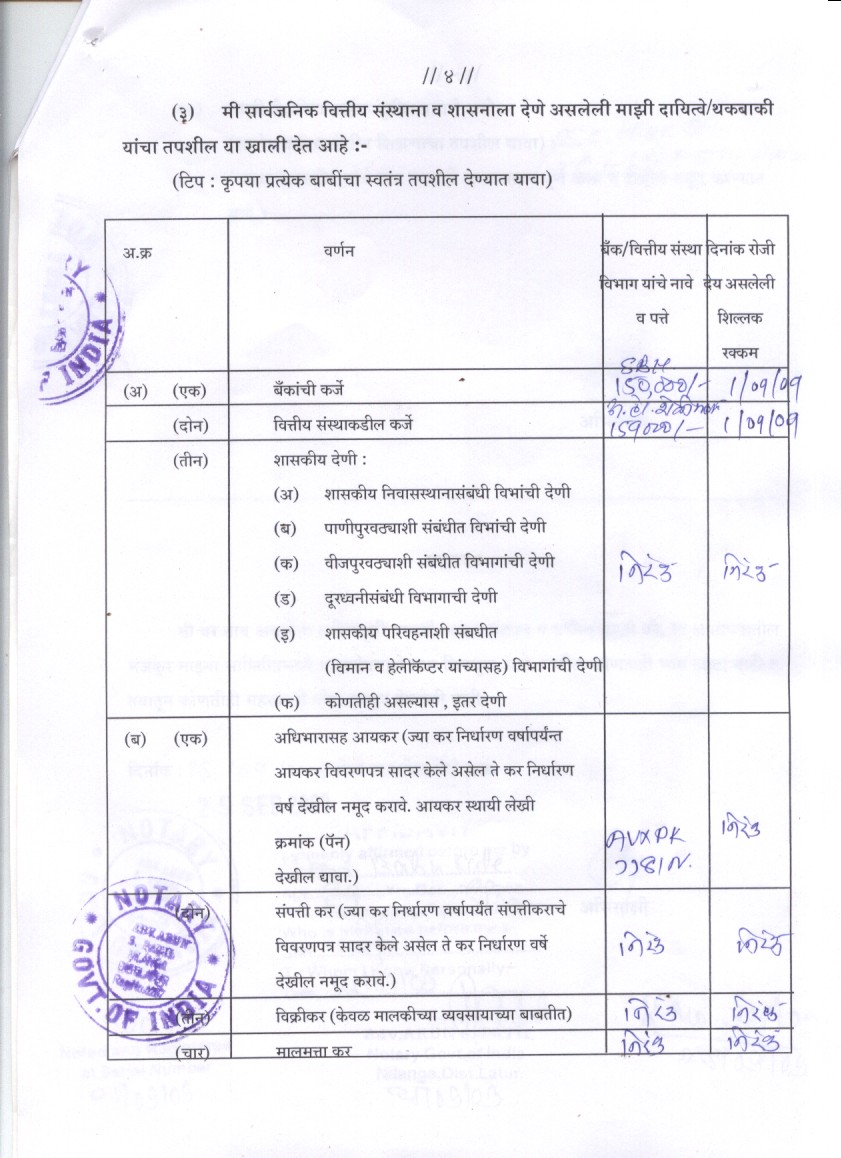 // ४ //
(३) मी सार्वजनिक वित्तीय संस्थाना व शासनाला देणे असलेली माझी दायित्वे/थकबाकी
यांचा तपशील या खाली देत आहे :-
(टिप : कृपया प्रत्येक बाबींचा स्वतंत्र तपशील देण्यात यावा)
अ.क्र वर्णन बँक/वित्तीय संस्था दिनांक रोजी
विभाग यांचे नावे देय असलेली
व पत्ते शिल्लक
रक्कम
SBH
(अ) (एक) बँकांची कर्जे 150,000/- 1/09/09
(दोन) वित्तीय संस्थाकडील कर्जे 159000/- 1/09/09
(तीन) शासकीय देणी :
(अ) शासकीय निवासस्थानासंबंधी विभांची देणी
(ब) पाणीपुरवठ्याशी संबंधीत विभांची देणी
(क) वीजपुरवठ्याशी संबंधीत विभागांची देणी निरंक निरंक
(ड) दूरध्वनीसंबंधी विभागाची देणी
(इ) शासकीय परिवहनाशी संबधीत
(विमान व हेलीकॅप्टर यांच्यासह) विभागांची देणी
(फ) कोणतीही असल्यास , इतर देणी
(ब) (एक) अधिभारासह आयकर (ज्या कर निर्धारण वर्षापर्यंन्त
आयकर विवरणपत्र सादर केले असेल ते कर निर्धारण
वर्ष देखील नमूद करावे. आयकर स्थायी लेखी निरंक
क्रमांक (पॅन) AVXPK
देखील द्यावा.)
(दोन) संपत्ती कर (ज्या कर निर्धारण वर्षापर्यंत संपत्तीकराचे
विवरणपत्र सादर केले असेल ते कर निर्धारण वर्षे निरंक निरंक
देखील नमूद करावे.)
(तीन) विक्रीकर (केवळ मालकीच्या व्यवसायाच्या बाबतीत) निरंक निरंक
(चार) मालमत्ता कर निरंक निरंक
INDIA
NOTARY
GOVT. OF INDIA